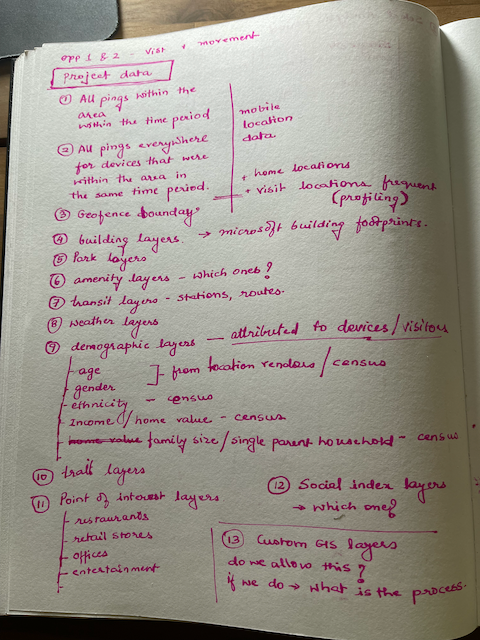 opp 1 & 2 - visit & movement
Project data
① All pings within the
area
within the time period
mobile
location
data
② All pings everywhere
for devices that were
within the area in
the same time period.
+ home locations
+ visit locations frequent
(profiling)
③ Geofence boundary
④ building layers. → microsoft building footprints.
⑤ Park layers
⑥ amenity layers - which ones?
⑦ transit layers - stations, routes.
⑧ weather layers
⑨ demographic layers — attributed to devices/visitors
- age
- gender
] - from location vendors / census
- ethnicity - census
- Income / home value - census
- home value family size/single parent household - census
⑩ trail layers
⑪ Point of interest layers
- restaurants
- retail stores
- offices
- entertainment
⑫ Social index layers
→ which one?
⑬ Custom GIS layers
do we allow this?
if we do → what is the process.